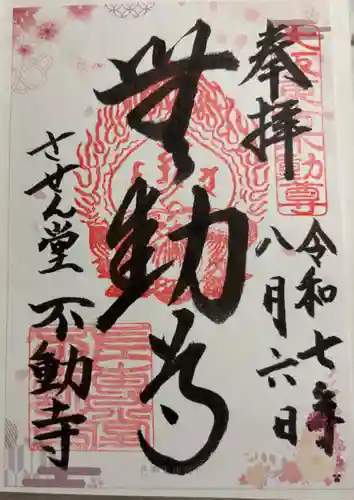 奉拝
令和七年
八月六日
無動尊
させん堂 不動寺